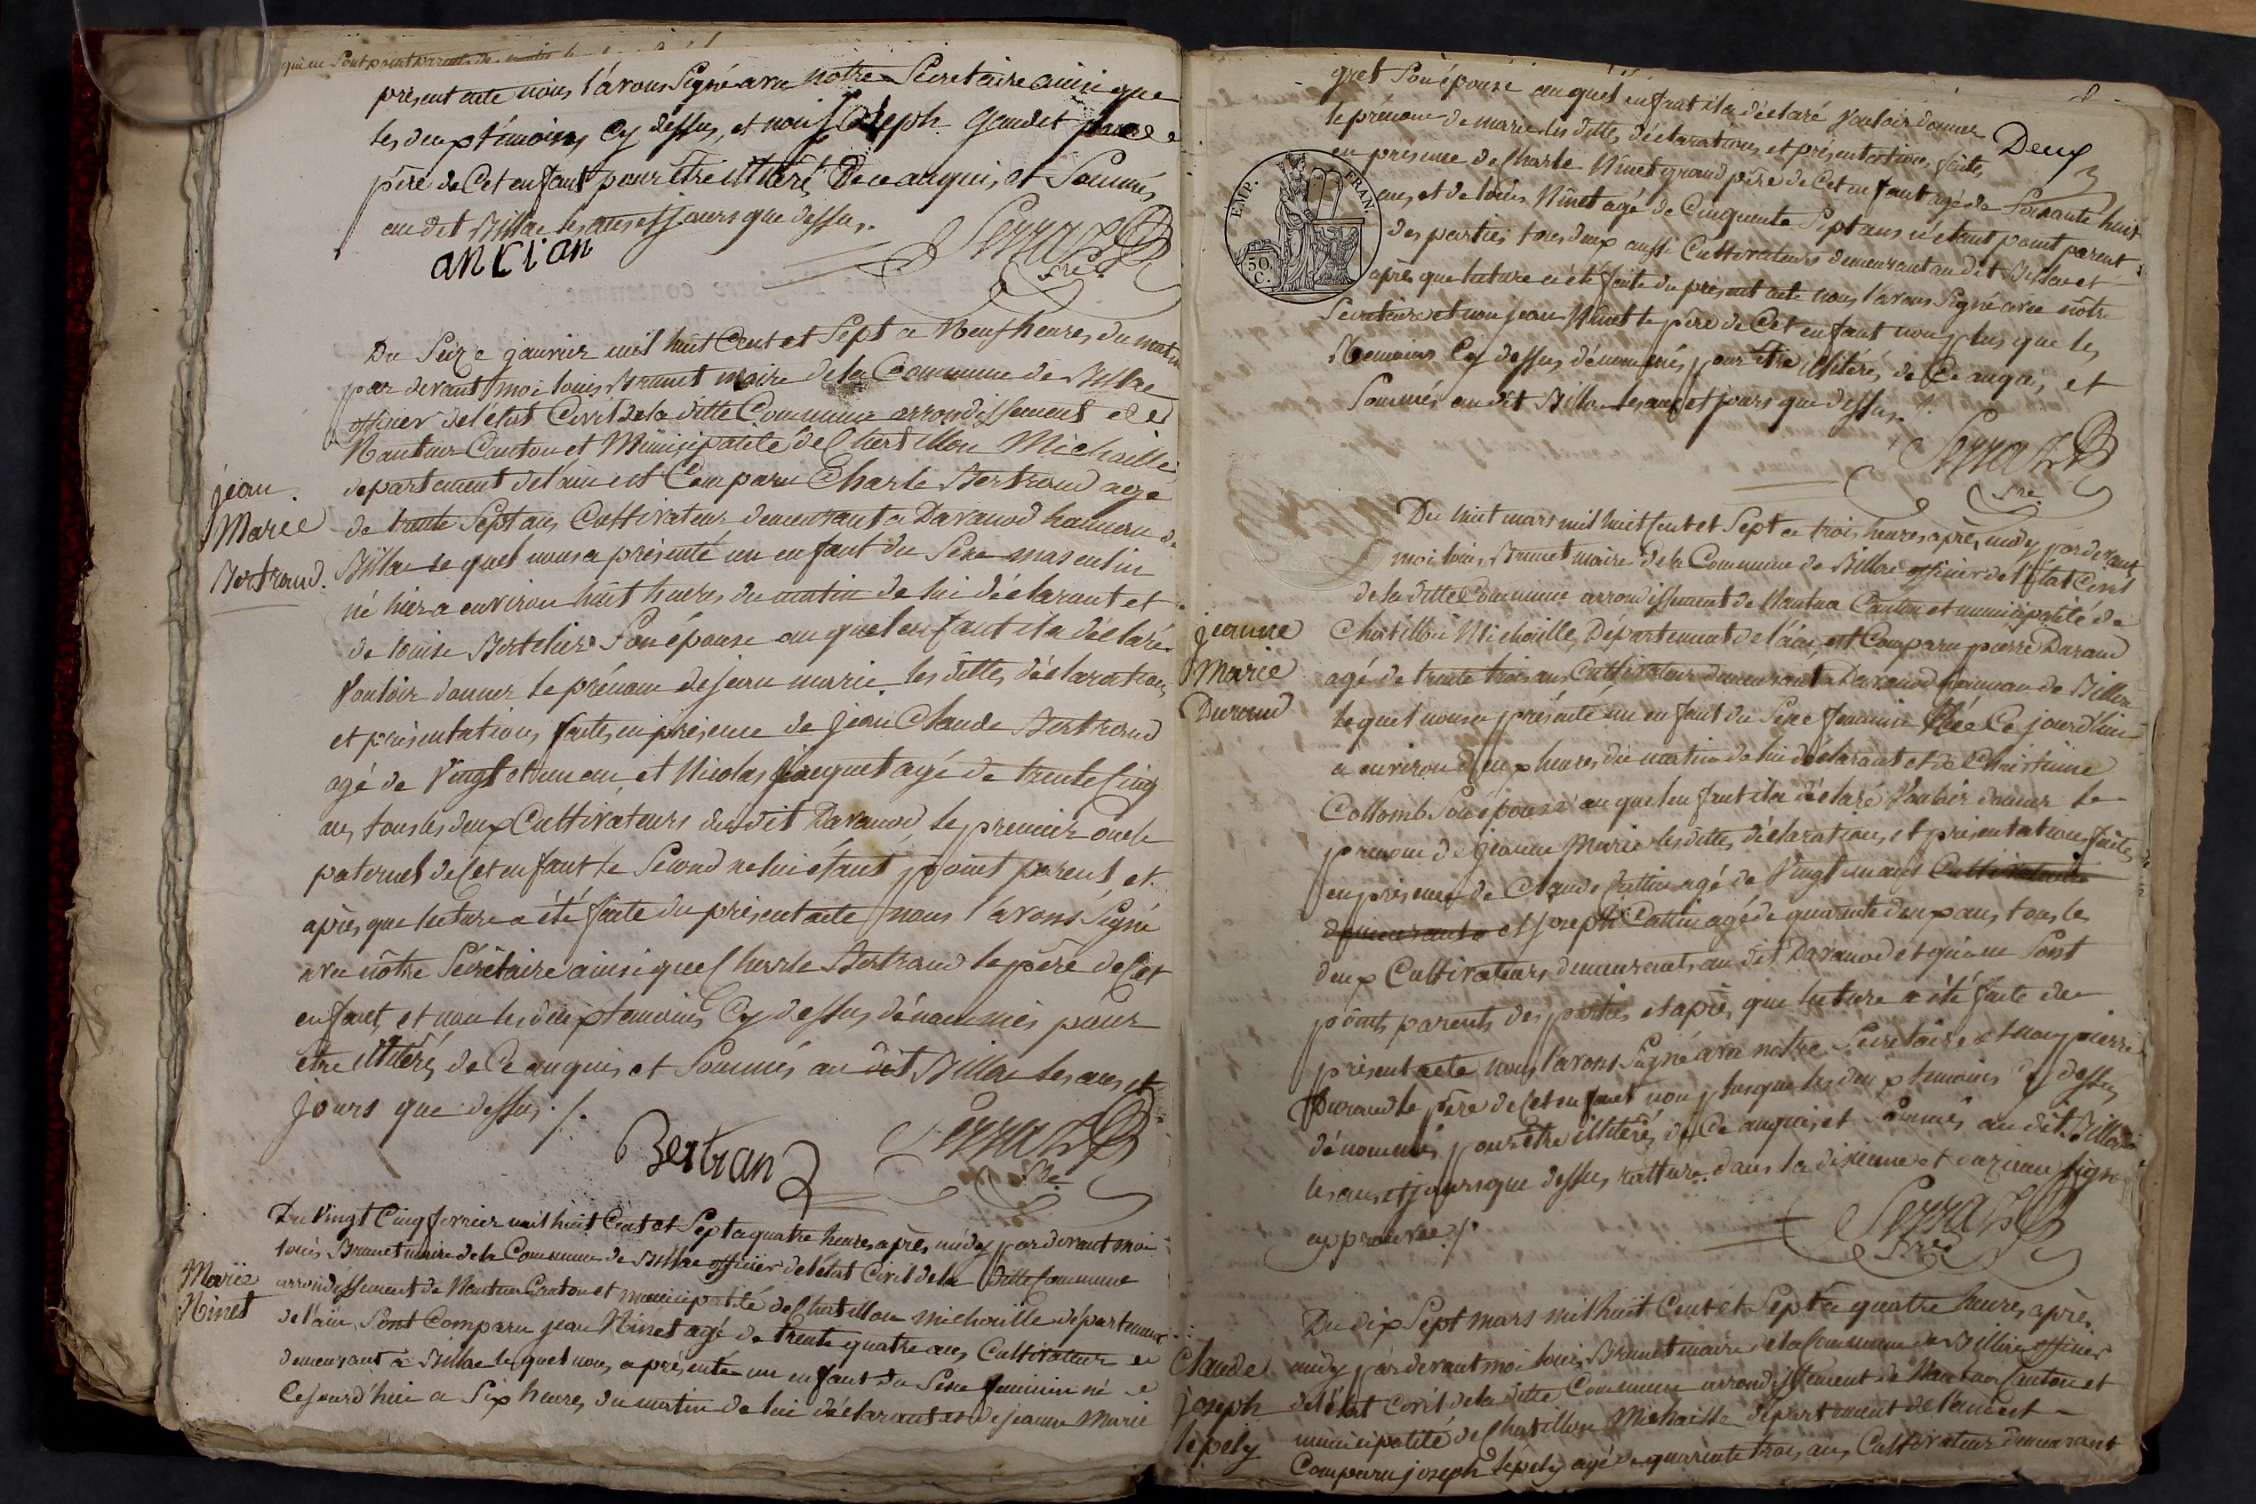 qui ne sont point parents de
présent acte nous l'avons Signé avec notre Secretaire ainsi que
les deux témoins Cy dessus, et non Joseph Gaudet
père de Cet enfant pour être illitéré de ce anquis, et Sommés
au dit Billia les ans et jours que dessus.
ancian
Sre
Du Seize janvier mil huit Cent et Sept a Neuf heures du matin
par devant moi louis Brunet maire de la Commune de Billia
officier de l'état Civil de la ditte Commune arrondissement de
Nantua Canton et Municipalité de Chatillon Michaille
departement de l'ain est Comparu Charle Bertrand agé
de trente Sept ans Cultivateur demeurant a Davanod hameau de
Billia le quel nous a présenté un enfant du Sexe masculin
né hier a environ huit heures du matin de lui déclarant et
de louise Bertelier Son épouse au quel enfant il a déclaré
Vouloir donner le prénom de jean marie. les dittes déclarations
et présentations faites en présence de jean Claude Bertrand
agé de Vingt et un an et Nicolas jacquet agé de trente Cinq
ans tous les deux Cultivateurs du dit Davanod, le premier oncle
paternel de Cet enfant le Second ne lui étant point parent, et
après que lecture a été faite du présent acte nous l'avons Signé
avec nôtre Sécrétaire ainsi que Charle Bertrand le père de Cet
enfant, et non les deux temoins Cy dessus dénommés pour
être illitérés, de Ce anquis et Sommés au dit Billia les ans et
jours que dessus ./.
Bertrand
Sre
jean
Marie
Bertrand.
Du Vingt Cinq fevrier mil huit Cent et Sept a quatre heures après midy par devant moi
louis Brunet maire de la Commune de Billia officier de l'état Civil de la ditte Commune
arrondissement de Nantua Canton et municipalité de Chatillon michaille département
de l'ain, Sont Comparu jean Ninet agé de trente quatre ans Cultivateur
demeurant à Billia le quel nous a présenté un enfant du Sexe feminin né
Ce jourd'hui a Six heures du matin de lui déclarant et de jeanne Marie
Marie
Ninet
gret Son épouse au quel enfant il a déclaré Vouloir donner
le prénom de marie les dittes déclarations et présentations faites
en presence de Charle Ninet grand père de Cet enfant agé de Soixante huit
ans, et de louis Ninet agé de Cinquante Sept ans n'étant point parent
des parties tous deux aussi Cultivateurs demeurant au dit Billia et
après que lecture a été faite du présent acte nous l'avons Signé avec nôtre
Secretaire et non jean Ninet le père de Cet enfant non plus que les
Temoins Cy dessus dénommés pour être illitérés, de Ce anquis, et
Sommés au dit Billia les ans et jours que dessus ./.
Sre
Deux
EMP. FRAN.
50
C.
Du huit mars mil huit Cent et Sept a trois heures après midy par devant
moi louis Brunet maire de la Commune de Billia officier de l'état Civil
de la ditte Commune arrondissement de Nantua Canton et municipalité de
Chatillon Michaille, Département de l'ain, est Comparu pierre Durand
agé de trente trois ans Cultivateur demeurant a Davanod hameau de Billia
le quel nous a présenté un enfant du Sexe feminin Née Ce jourd'hui
a environ deux heures du matin de lui déclarant et de Christinne
Collomb Son épouse au quel enfant il a déclaré Vouloir donner le
prénom de jeanne Marie les dittes déclarations et présentations faites
en presence de Claude agé de Vingt Cultivateur
demeurant a et joseph Cattin agé de quarante deux ans, tous les
deux Cultivateurs demeurants au dit Davanod et qui ne Sont
points parents des parties, et après que lecture a été faite du
présent acte nous l'avons Signé avec nôtre Secretaire et non pierre
Durand le père de Cet enfant non plus que les deux temoins Cy dessus
dénommés, pour être illitérés, de Ce anquis, et Sommés au dit Billia
les ans et jours que dessus, ratture dans la dixieme et onzieme ligne
approuvée ./.
Sre
jeanne
Marie
Durand
Du dix Sept mars mil huit Cent et Sept a quatre heures après
midy par devant moi louis Brunet maire de la Commune de Billia officier
de l'état Civil de la ditte Commune arrondissement de Nantua Canton et
municipalité de Chatillon Michaille département de l'ain est
Comparu joseph lépely agé de quarante trois ans Cultivateur demeurant
Claude
joseph
lépely